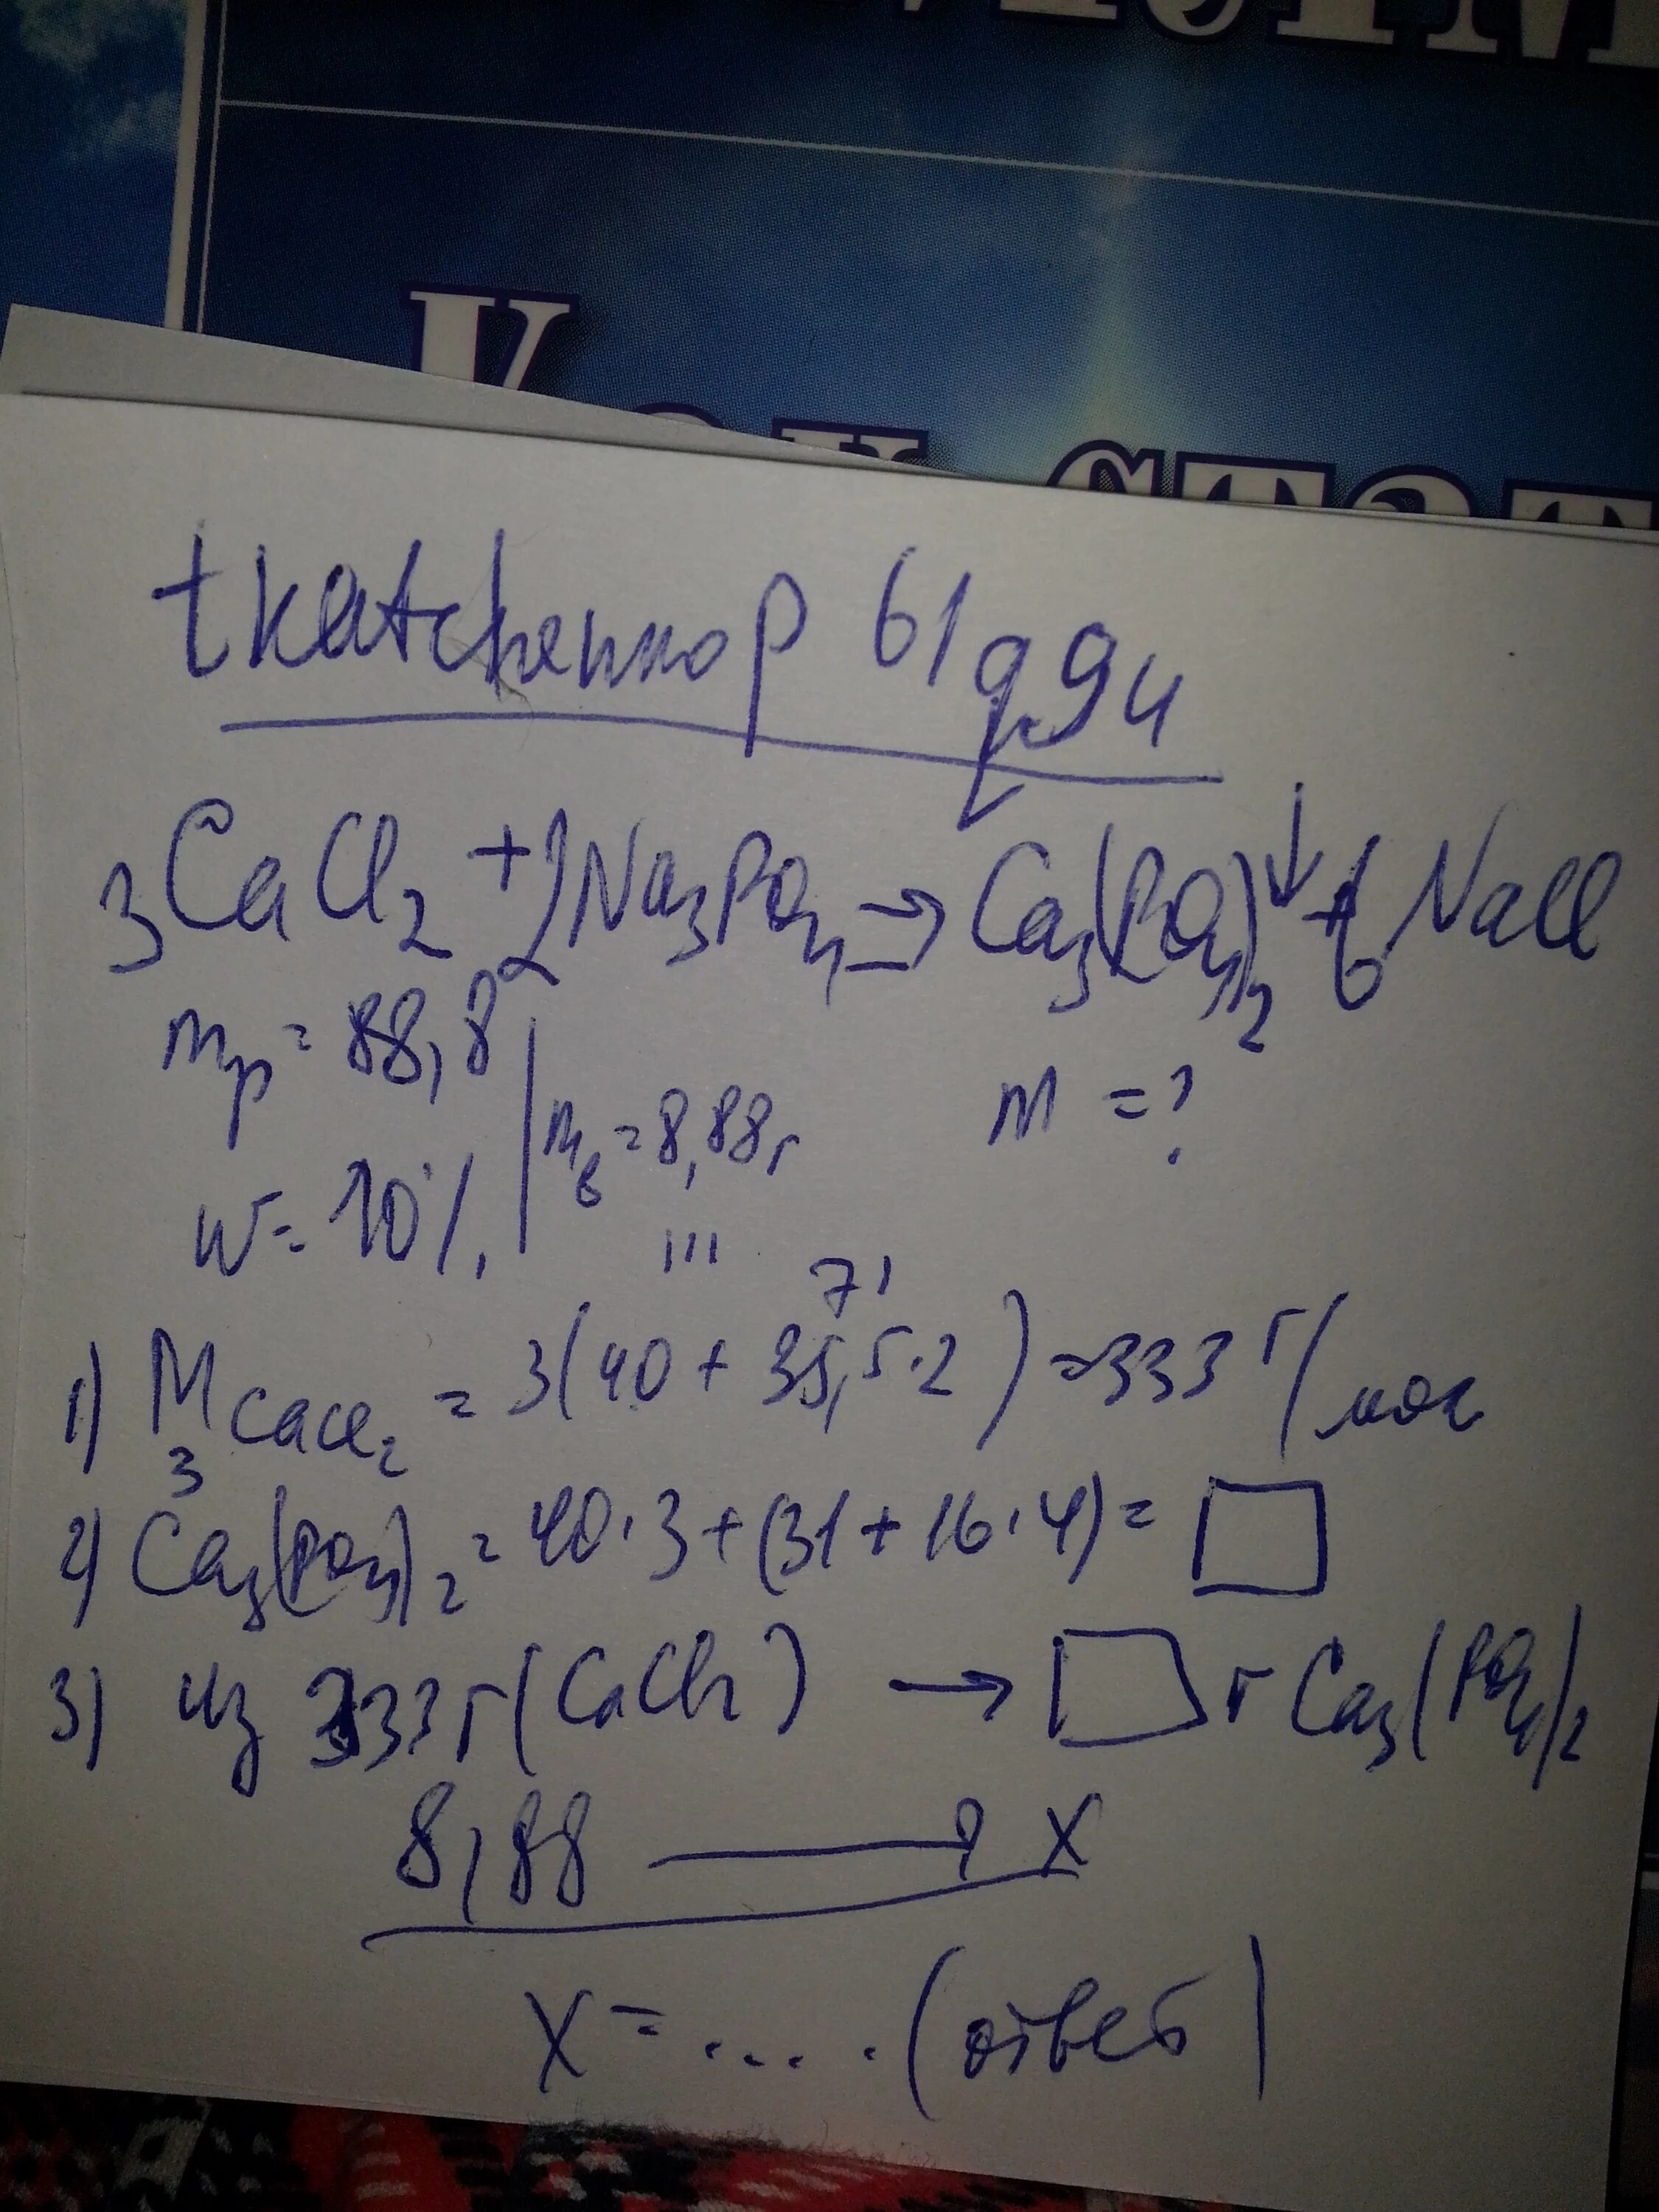 tkatchenкop 61994
3CaCl₂ + 2Na₃PO₄ → Ca₃(PO₄)₂↓ + 6NaCl
mр = 88,8
mв = 8,88г
m = ?
w = 10%
111
71
1) M 3CaCl₂ = 3(40 + 35,5·2) = 333 г/мол
2) Ca₃(PO₄)₂ = 40·3 + (31 + 16·4) =
3) из 333г (CaCl₂) → г Ca₃(PO₄)₂
8,88 — x
x = ..... (ответ)